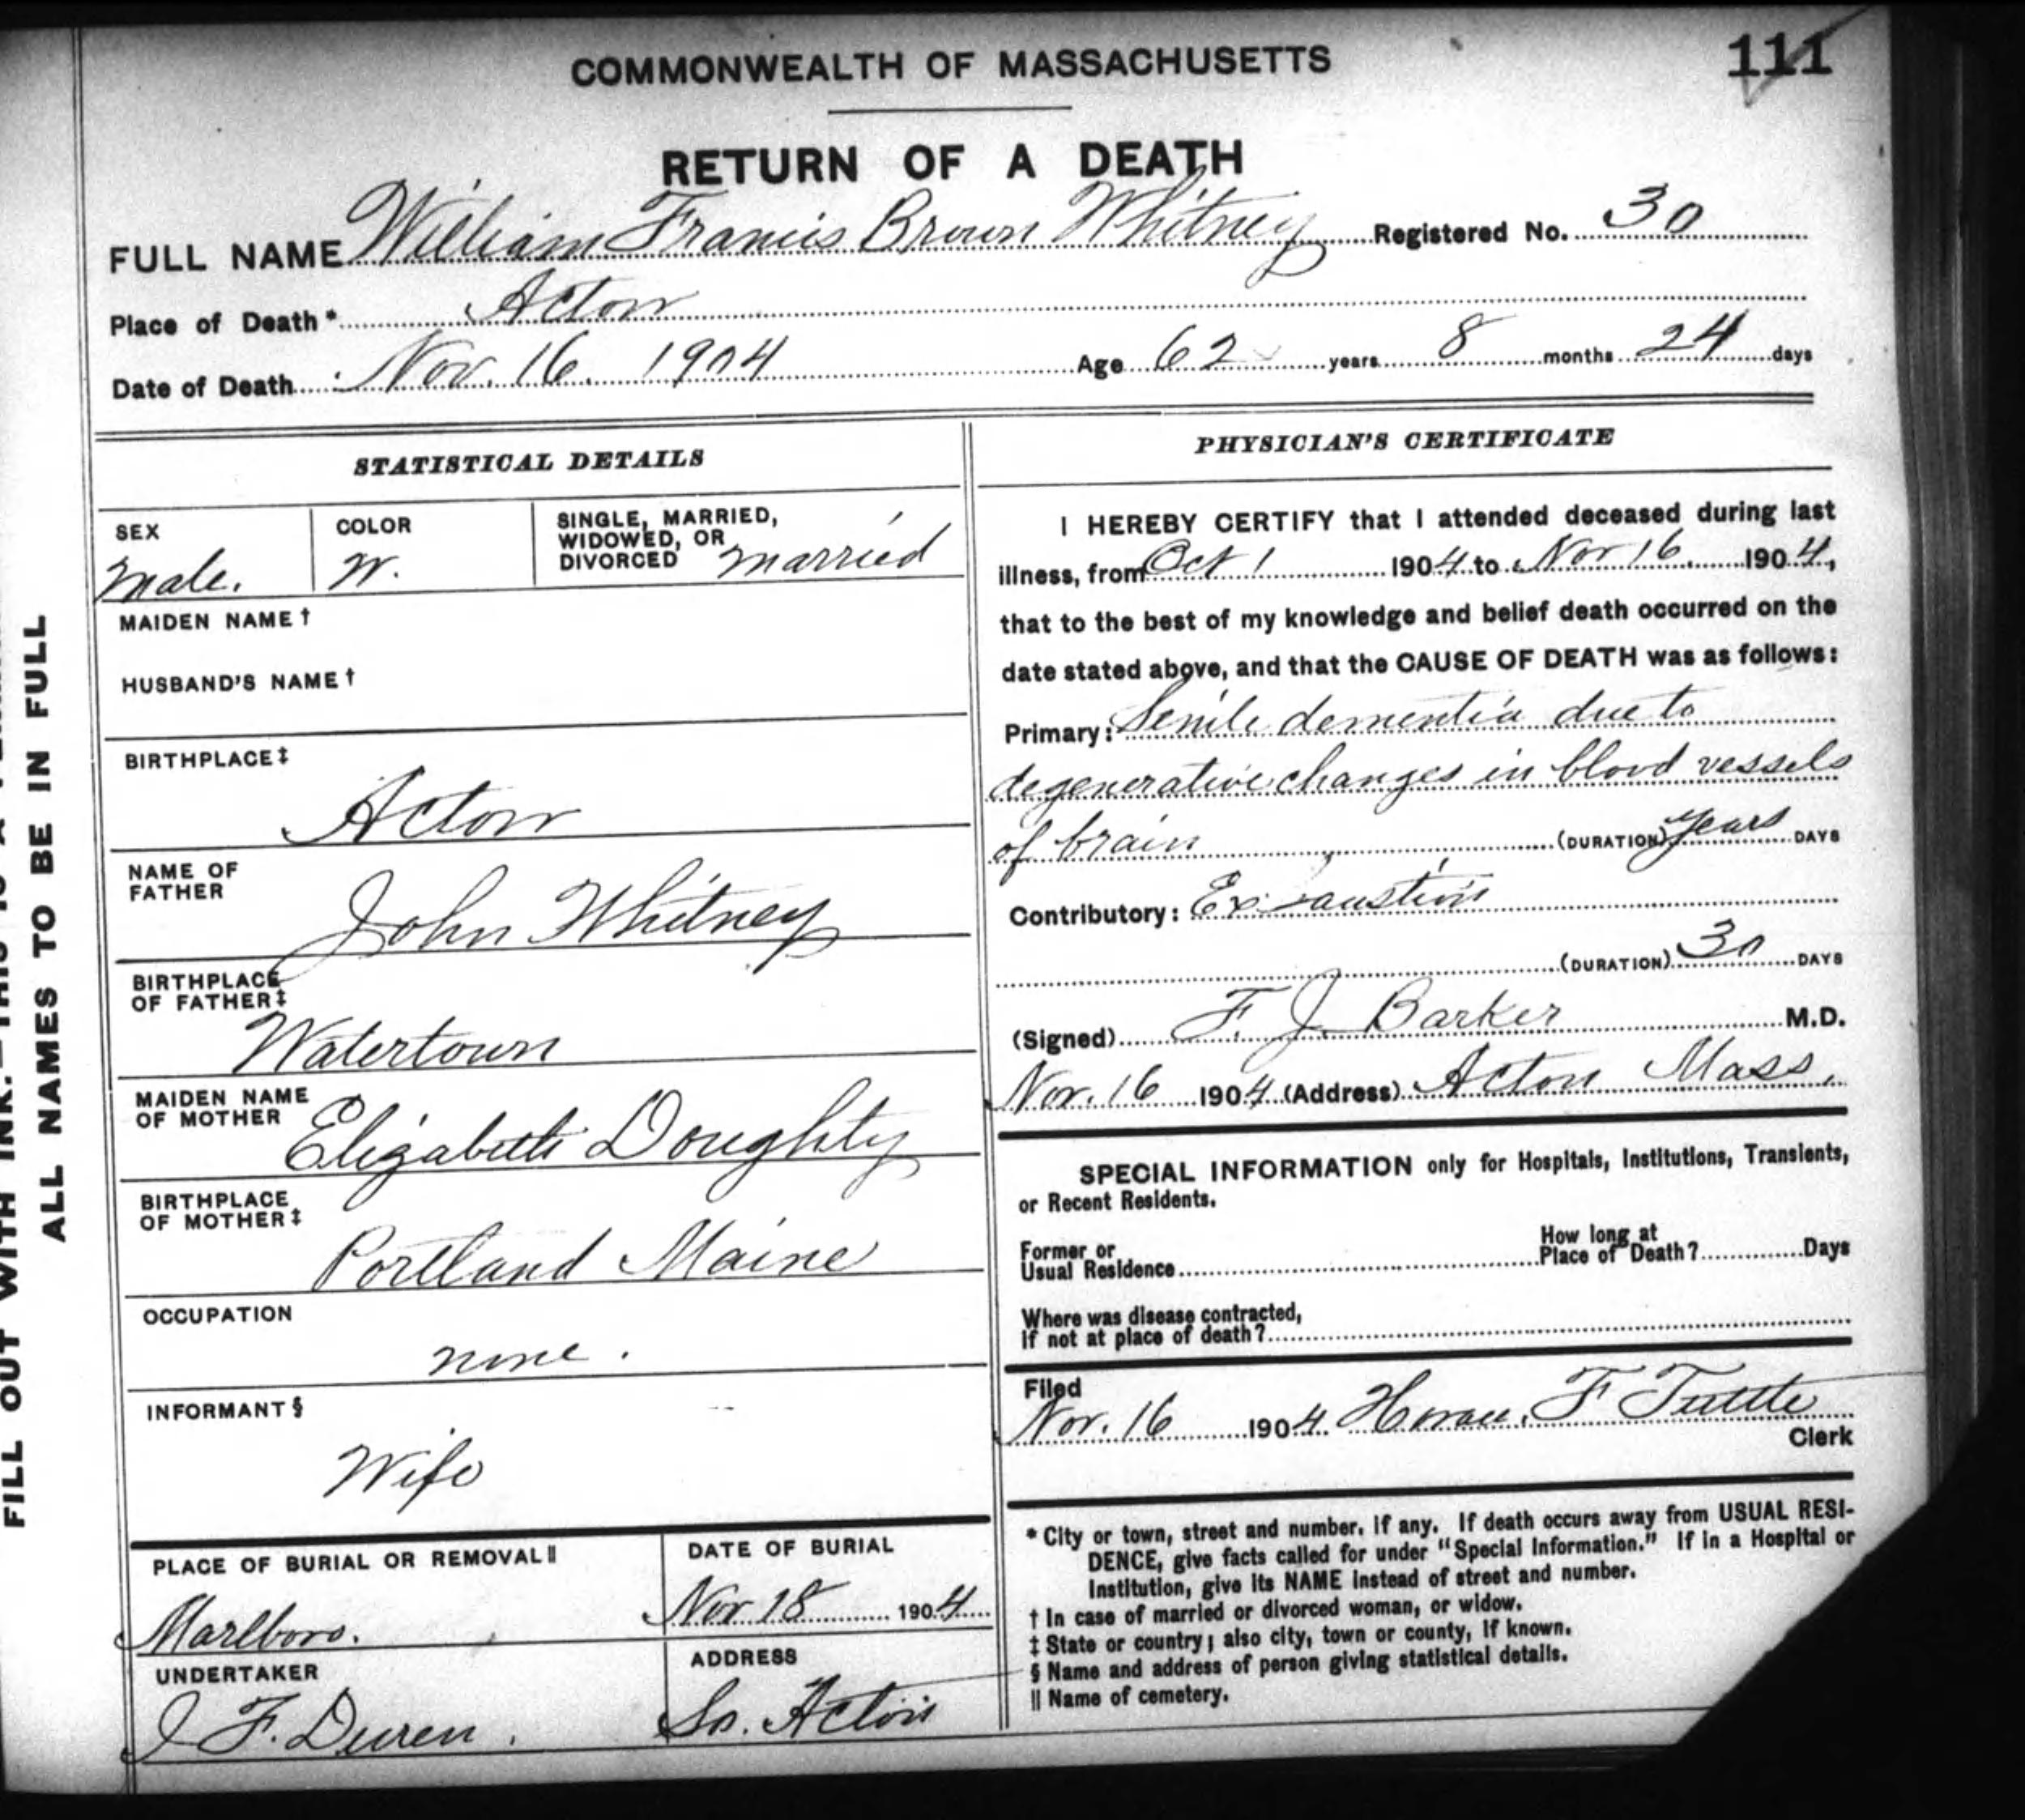 COMMONWEALTH OF MASSACHUSETTS
111
RETURN OF A DEATH
FULL NAME William Francis Brown Whitney Registered No. 30
Place of Death* Acton
Date of Death Nov. 16. 1904 Age 62 years 8 months 24 days
STATISTICAL DETAILS
SEX
Male.
COLOR
W.
SINGLE, MARRIED,
WIDOWED, OR
DIVORCED Married
MAIDEN NAME †
HUSBAND'S NAME †
BIRTHPLACE ‡
Acton
NAME OF
FATHER
John Whitney
BIRTHPLACE
OF FATHER ‡
Watertown
MAIDEN NAME
OF MOTHER
Elizabeth Doughty
BIRTHPLACE
OF MOTHER ‡
Portland Maine
OCCUPATION
none.
INFORMANT §
Wife
PLACE OF BURIAL OR REMOVAL ||
Marlboro.
DATE OF BURIAL
Nov 18 1904
UNDERTAKER
J. F. Duren.
ADDRESS
So. Acton
PHYSICIAN'S CERTIFICATE
I HEREBY CERTIFY that I attended deceased during last
illness, from Oct 1 1904 to Nov 16 1904,
that to the best of my knowledge and belief death occurred on the
date stated above, and that the CAUSE OF DEATH was as follows:
Primary: Senile dementia due to
degenerative changes in blood vessels
of brain (DURATION) years DAYS
Contributory: Exhaustion
(DURATION) 30 DAYS
(Signed) F. J. Barker M.D.
Nov. 16 1904 (Address) Acton Mass.
SPECIAL INFORMATION only for Hospitals, Institutions, Transients,
or Recent Residents.
Former or
Usual Residence
How long at
Place of Death? Days
Where was disease contracted,
If not at place of death?
Filed
Nov. 16 1904 Horace F Tuttle
Clerk
* City or town, street and number, if any. If death occurs away from USUAL RESI-
DENCE, give facts called for under "Special Information." If in a Hospital or
Institution, give its NAME instead of street and number.
† In case of married or divorced woman, or widow.
‡ State or country; also city, town or county, if known.
§ Name and address of person giving statistical details.
|| Name of cemetery.
FILL OUT WITH INK.
ALL NAMES TO BE IN FULL